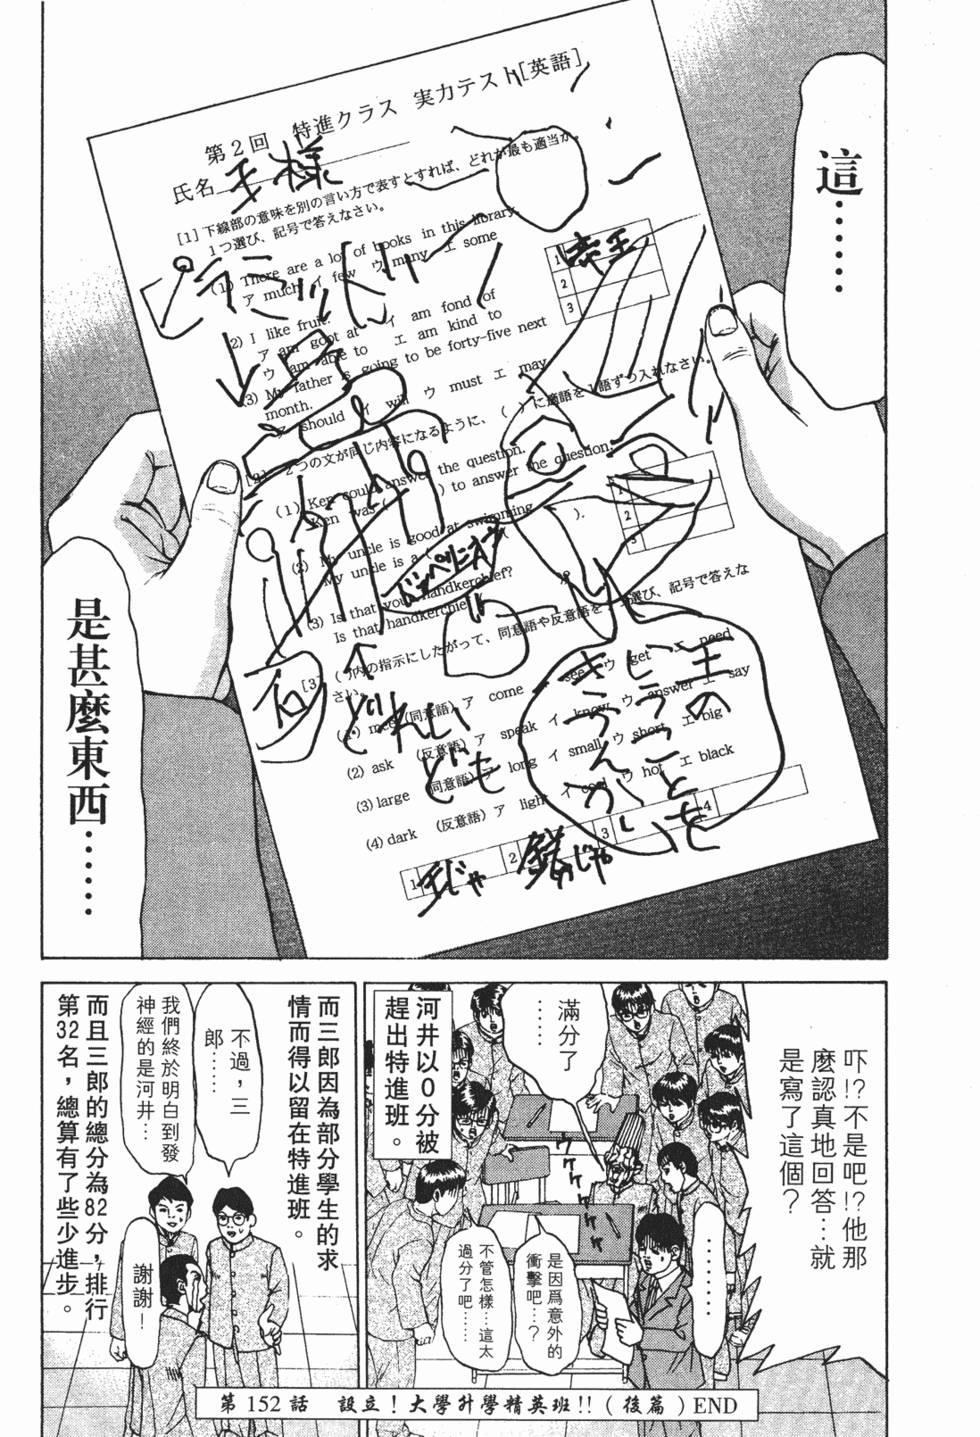 這……
是甚麼東西……
第2回 特進クラス 実力テスト[英語]
氏名 王様
[1]下線部の意味を別の言い方で表すとすれば、どれが最も適当か。
1つ選び、記号で答えなさい。
(1) There are a lot of books in this library.
ア much イ few ウ many エ some
(2) I like fruit.
ア am goot at イ am fond of
ウ am able to エ am kind to
(3) My father is going to be forty-five next
month.
ア should イ will ウ must エ may
[2] 2つの文が同じ内容になるように、( )に適語を1語ずつ入れなさい。
(1) Ken could answer the question.
Ken was ( ) to answer the question.
(2) My uncle is good at swimming
My uncle is a ( ) ( ).
(3) Is that your handkerchief?
Is that handkerchief ( )?
[3] ( )内の指示にしたがって、同意語や反意語を1つ選び、記号で答えな
さい。
(1) meet (同意語) ア come イ see ウ get エ need
(2) ask (反意語) ア speak イ know ウ answer エ say
(3) large (同意語) ア long イ small ウ short エ big
(4) dark (反意語) ア light イ cool ウ hot エ black
1
2
3
1
2
3
1
2
3
4
帝王
ピラミッド
石
どれい
ども
王の
いうことを
きうんがいい
王じゃ
吓!?不是吧!?他那
麼認真地回答…就
是寫了這個?
滿分了
……
………
是因爲意外的
衝擊吧…?
不管怎樣…這太
過分了吧……
ウケケケ
河井以0分被
趕出特進班。
而三郎因為部分學生的求
情而得以留在特進班。
不過，三
郎……
我們終於明白到發
神經的是河井…
謝謝!
而且三郎的總分為82分，排行
第32名，總算有了些少進步。
第152話 設立!大學升學精英班!!(後篇)END